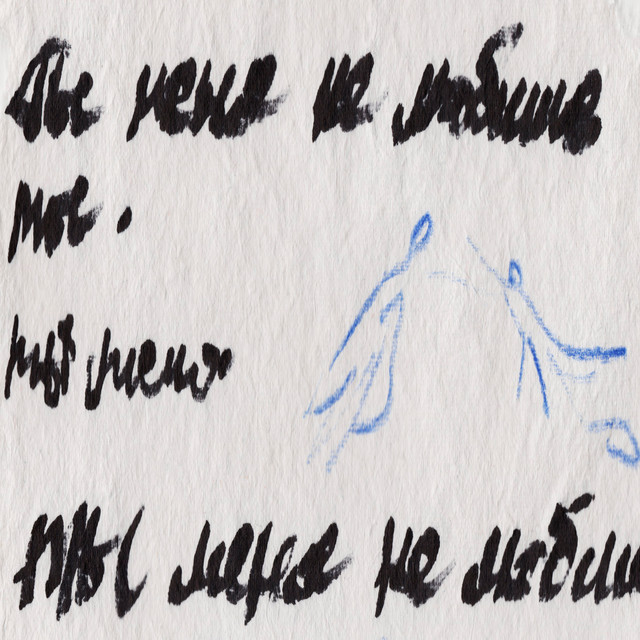 Ты меня не любишь
ты.
ты меня
ты меня не любиш